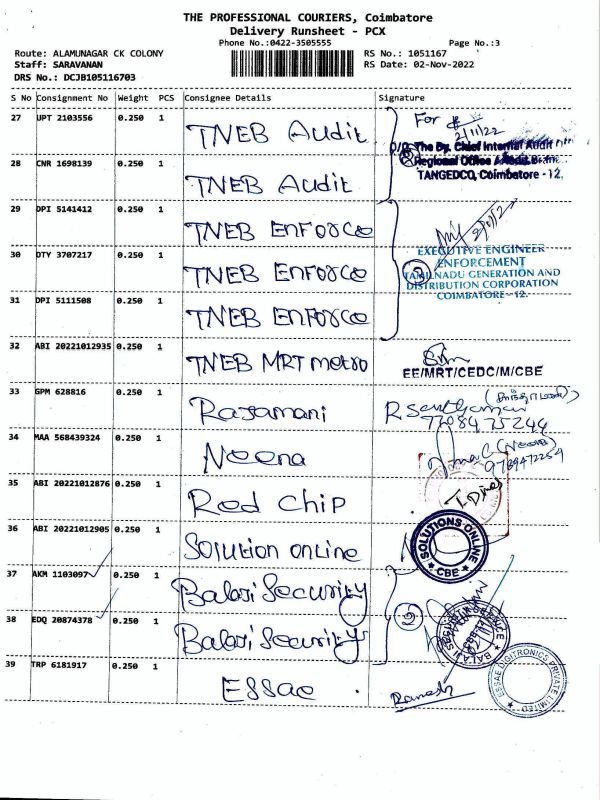 THE PROFESSIONAL COURIERS, Coimbatore
Delivery Runsheet - PCX
Phone No.:0422-3505555 Page No.:3
Route: ALAMUNAGAR CK COLONY RS No.: 1051167
Staff: SARAVANAN RS Date: 02-Nov-2022
DRS No.: DCJB105116703
S No Consignment No Weight PCS Consignee Details Signature
27 UPT 2103556 0.250 1 TNEB Audit For
2/11/22
O/o The Dy. Chief Internal Audit
28 CNR 1698139 0.250 1 TNEB Audit
Regional Office
TANGEDCO, Coimbatore - 12.
29 DPI 5141412 0.250 1 TNEB Enforce
30 DTY 3707217 0.250 1 TNEB Enforce
EXECUTIVE ENGINEER
ENFORCEMENT
TAMILNADU GENERATION AND
DISTRIBUTION CORPORATION
COIMBATORE - 12.
31 DPI 5111508 0.250 1 TNEB Enforce
32 ABI 20221012935 0.250 1 TNEB MRT metro
EE/MRT/CEDC/M/CBE
33 GPM 628816 0.250 1 Rajamani
7708475244
34 MAA 568439324 0.250 1 Neena
(Neena)
9789472254
35 ABI 20221012876 0.250 1 Red Chip
36 ABI 20221012905 0.250 1 Solution online
SOLUTIONS ONLINE
CBE
37 AKM 1103097 0.250 1 Balaji Security
38 EDQ 20874378 0.250 1 Balaji Security
2
39 TRP 6181917 0.250 1 Essae
Ramesh
ESSAE DIGITRONICS PRIVATE LIMITED